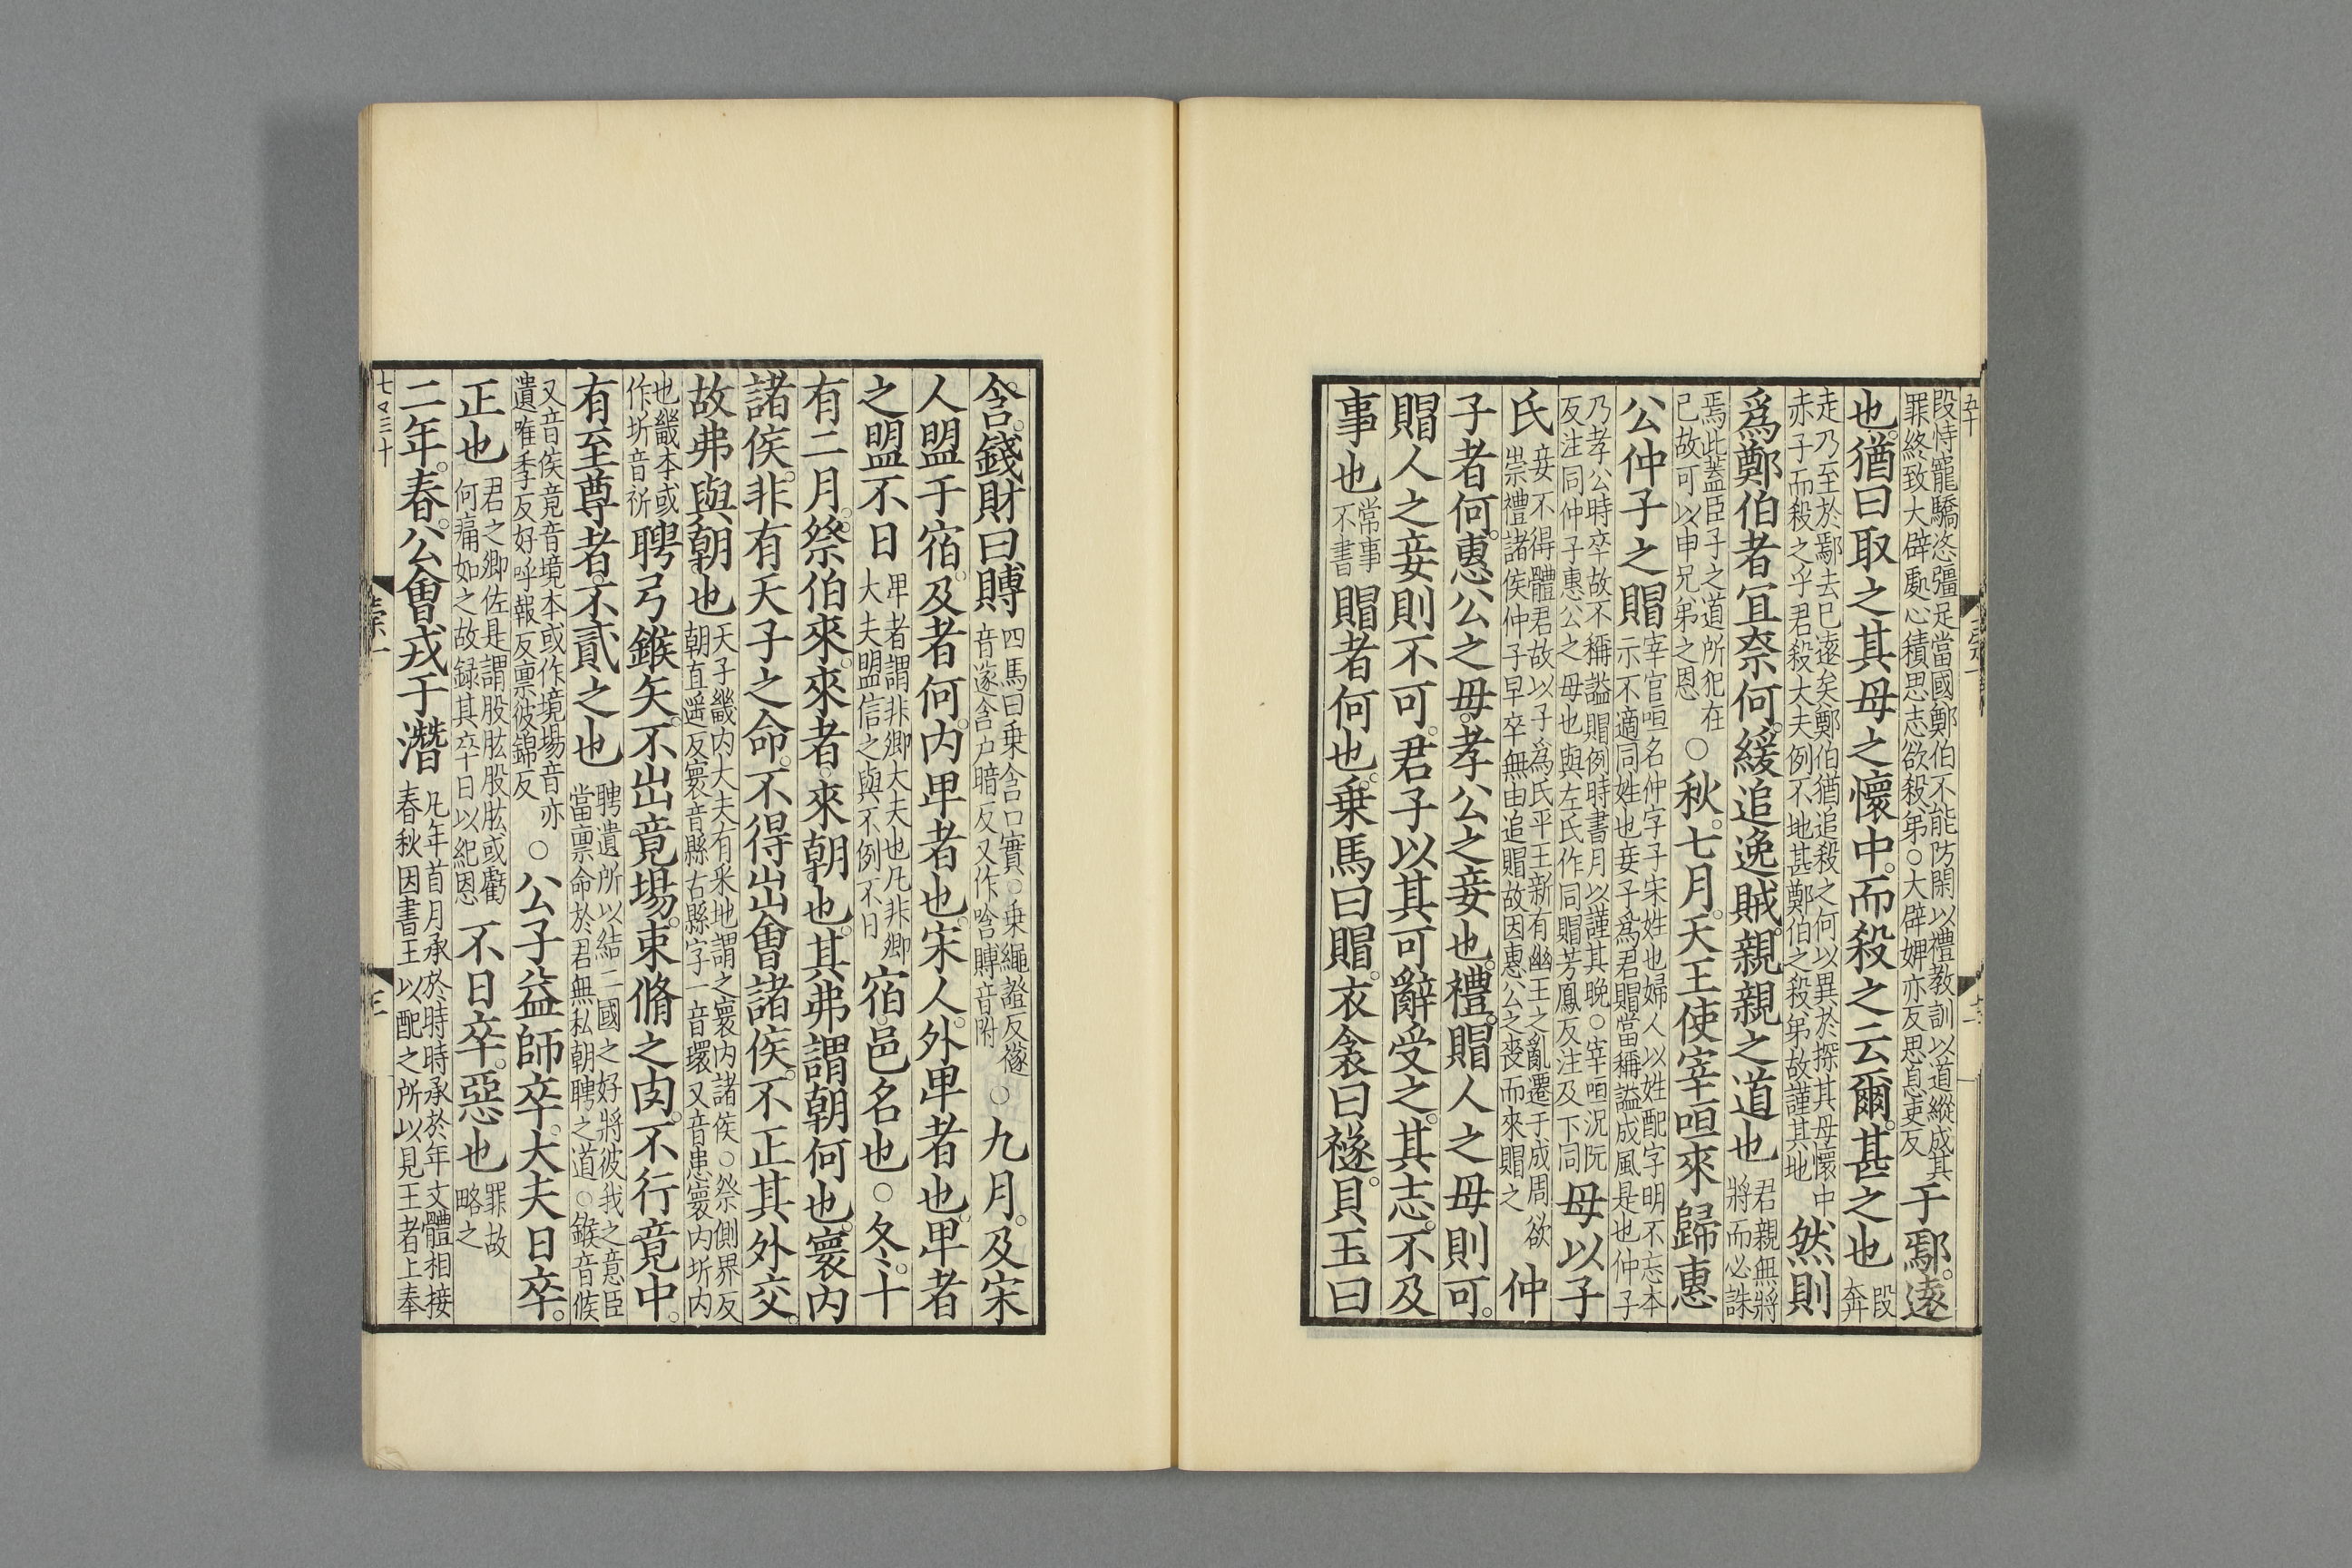 五十
段恃寵驕恣彊足當國鄭伯不能防閑以禮教訓以道縱成其罪終致大辟處心積思志欲殺弟○大辟婢亦反思息吏反于鄢。遠
也。猶曰取之其母之懷中。而殺之云爾。甚之也段奔
走乃至於鄢去已遠矣鄭伯猶追殺之何以異於探其母懷中赤子而殺之乎君殺大夫例不地甚鄭伯之殺弟故謹其地然則
爲鄭伯者宜奈何。緩追逸賊。親親之道也君親無將將而必誅
焉此蓋臣子之道所犯在己故可以申兄弟之恩○秋。七月。天王使宰咺來歸惠
公仲子之賵宰官咺名仲字子宋姓也婦人以姓配字明不忘本示不適同姓也妾子爲君賵當稱謚成風是也仲子
乃孝公時卒故不稱謚賵例時書月以謹其晚○宰咺況阮反注同仲子惠公之母也與左氏作同賵芳鳳反注及下同母以子
氏妾不得體君故以子爲氏平王新有幽王之亂遷于成周欲崇禮諸侯仲子早卒無由追賵故因惠公之喪而來賵之仲
子者何。惠公之母。孝公之妾也。禮。賵人之母則可。
賵人之妾則不可。君子以其可辭受之。其志。不及
事也常事不書賵者何也。乗馬曰賵。衣衾曰襚。貝玉曰
含。錢財曰賻四馬曰乗含口實○乗繩證反襚音遂含户暗反又作唅賻音附○九月。及宋
人盟于宿。及者何。内卑者也。宋人。外卑者也。卑者
之盟不日卑者謂非卿大夫也凡非卿大夫盟信之與不例不日宿。邑名也○冬。十
有二月。祭伯來。來者。來朝也。其弗謂朝何也。寰内
諸侯。非有天子之命。不得出會諸侯。不正其外交。
故弗與朝也天子畿内大夫有采地謂之寰内諸侯○祭側界反朝直遥反寰音縣古縣字一音環又音患寰内圻内
也畿本或作圻音祈聘弓鍭矢。不出竟場。束脩之肉。不行竟中。
有至尊者。不貳之也聘遺所以結二國之好將彼我之意臣當禀命於君無私朝聘之道○鍭音候
又音侯竟音境本或作境場音亦遺唯季反好呼報反禀彼錦反○公子益師卒。大夫日卒。
正也君之卿佐是謂股肱股肱或虧何痛如之故録其卒日以紀恩不日卒。惡也罪故略之
二年。春。公會戎于潛凡年首月承於時時承於年文體相接春秋因書王以配之所以見王者上奉
三